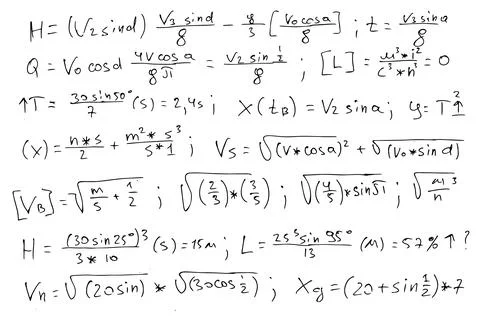 H = (V₂ sin d) V₃ sin d / 8 − y/3 [V₀ cos a / 8] ; t = V₃ sin a / 8
Q = V₀ cos d 4V cos a / 8π = V₂ sin ½ / 8 ; [L] = м³ * i² / c³ * н³ = 0
↑T = 30 sin 50° / 7 (s) = 2,4s ; X(t_B) = V₂ sin a ; y = T² ↑
(x) = n * s / 2 + m² * s³ / s * 1 ; Vs = √(V * cos a)² + √(V₀ * sin d)
[V_B] = √m/s + 1/2 ; √(2/3) * (3/5) ; √(4/5) * sin π ; √м³/н
H = (30 sin 25°)³ / 3 * 10 (s) = 15м ; L = 25³ sin 95° / 13 (м) = 57% ↑ ?
Vn = √(20 sin) * √(30 cos ½) ; Xg = (20 + sin ½) * 7